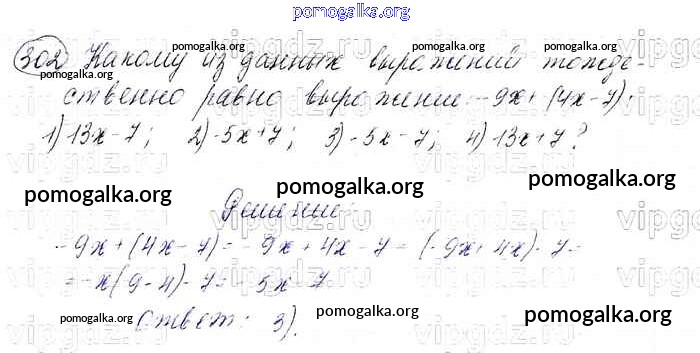 pomogalka.org
302 Какому из данных выражений тожде-
ственно равно выражение -9x + (4x - 7):
1) 13x - 7; 2) -5x + 7; 3) -5x - 7; 4) 13x + 7?
pomogalka.org pomogalka.org pomogalka.org
Решение:
-9x + (4x - 7) = -9x + 4x - 7 = (-9x + 4x) - 7 =
= -x(9 - 4) - 7 = -5x - 7
Ответ: 3).
pomogalka.org pomogalka.org pomogalka.org